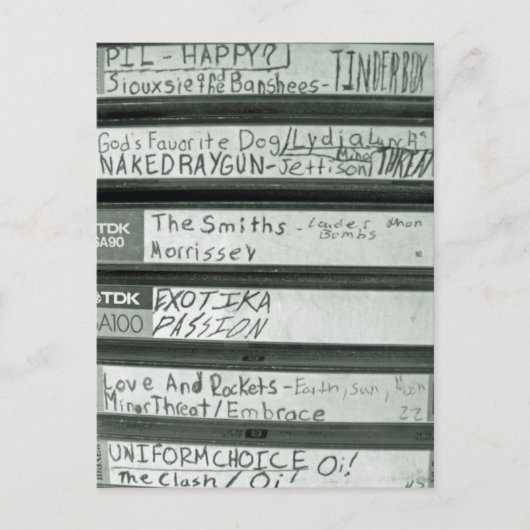 PIL - HAPPY?
Siouxsie and the Banshees - TINDERBOX
God's Favorite Dog / Lydia Lunch
NAKED RAYGUN - Jettison
Minor THREAT
TDK
SA90
The Smiths - Louder than
Bombs
Morrissey
TDK
SA100
EXOTIKA
PASSION
Love And Rockets - Earth, Sun, Moon
Minor Threat / Embrace
22
UNIFORM CHOICE Oi!
The Clash / Oi!